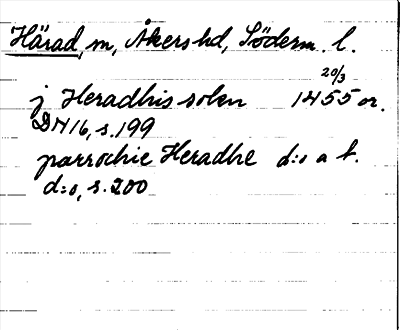 Härad, sn, Åkers hd, Söderm. l.
20/3
j Heradhis sokn 1455 or.
DN 16, s. 199
parrochie Heradhe d:o a f.
d:o, s. 200